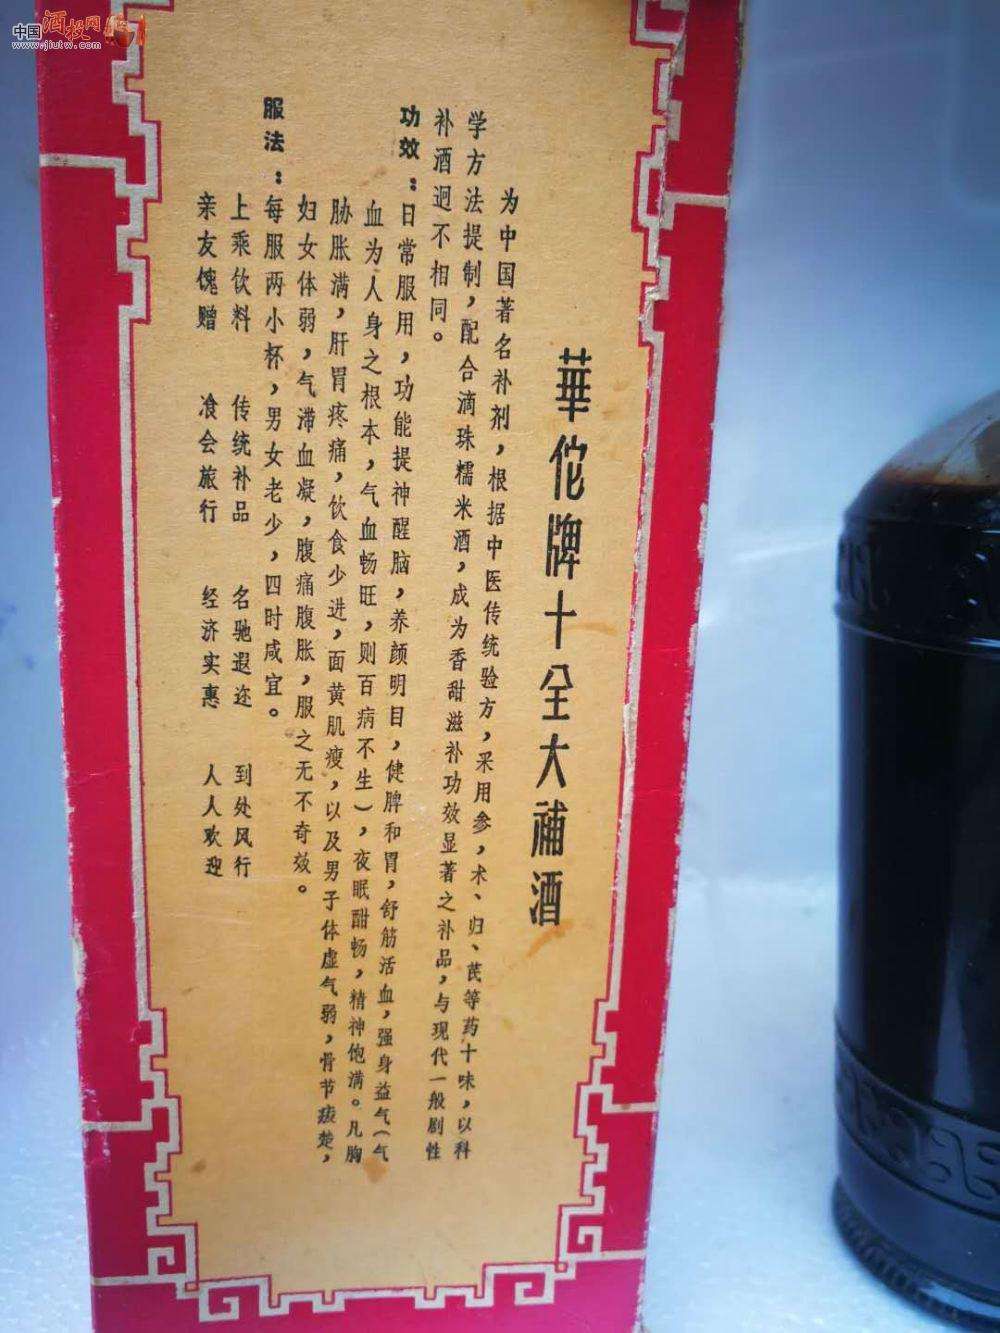 中国酒投网
www.jiutw.com
華佗牌十全大補酒
为中国著名补剂，根据中医传统验方，采用参，术、归、芪等药十味，以科
学方法提制，配合滴珠糯米酒，成为香甜滋补功效显著之补品，与现代一般剧性
补酒迥不相同。
功效：日常服用，功能提神醒脑，养颜明目，健脾和胃，舒筋活血，强身益气（气
血为人身之根本，气血畅旺，则百病不生），夜眠酣畅，精神饱满。凡胸
胁胀满，肝胃疼痛，饮食少进，面黄肌瘦，以及男子体虚气弱，骨节痠楚，
妇女体弱，气滞血凝，腹痛腹胀，服之无不奇效。
服法：每服两小杯，男女老少，四时咸宜。
上乘饮料　传统补品　名驰遐迩　到处风行
亲友馈赠　飡会旅行　经济实惠　人人欢迎